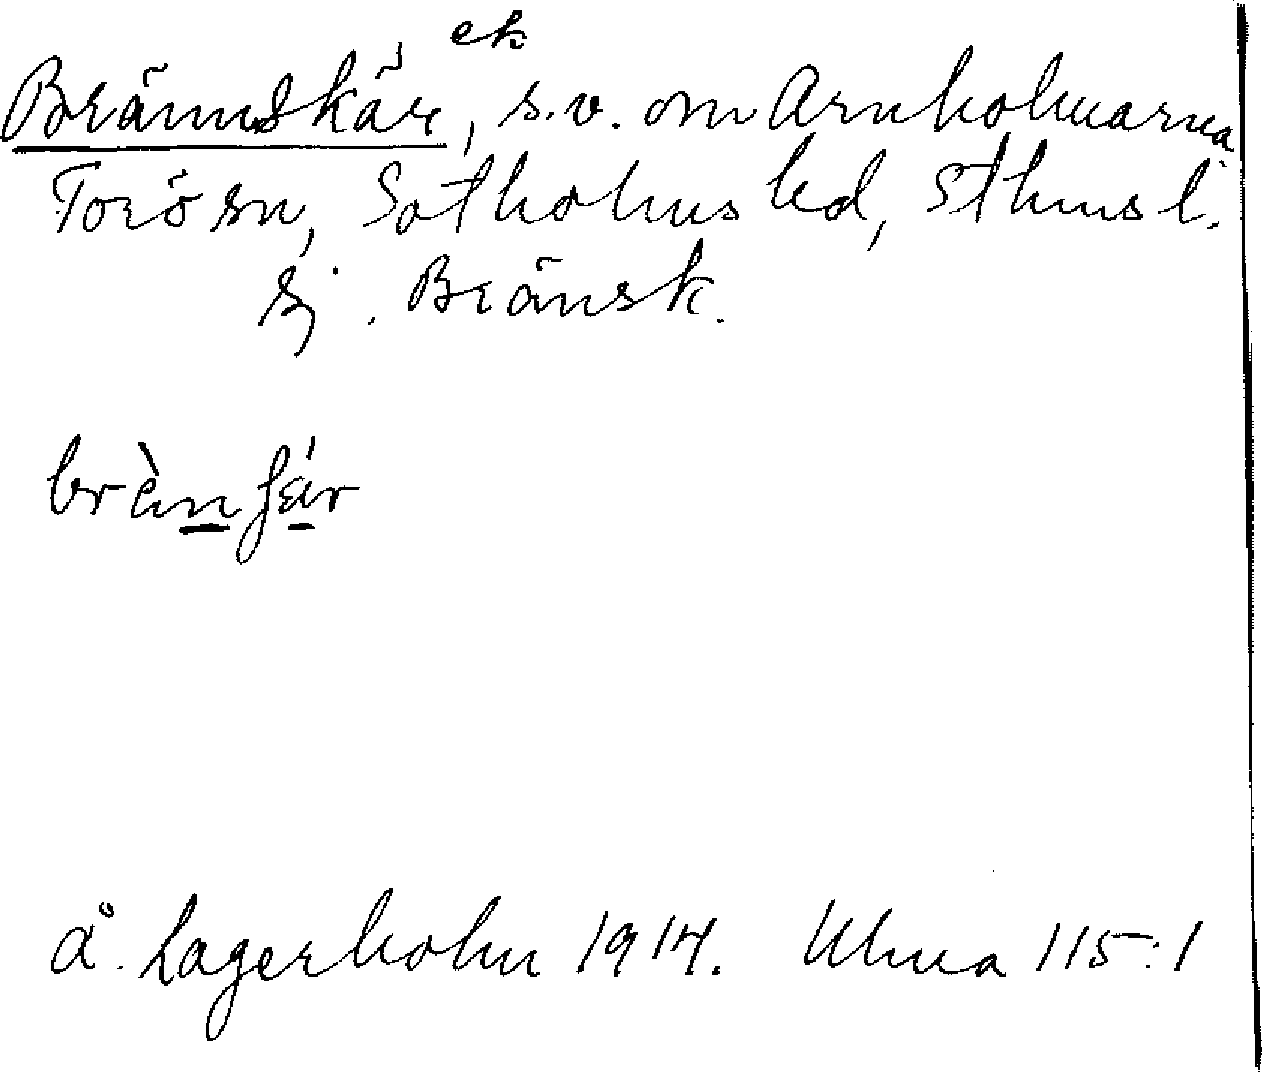 ek
Brännskär, s.v. om Arnholmarna
Torö sn, Sotholms hd, Sthms l.
Sj. Bränsk.
brànſär
Å. Lagerholm 1914. Ulma 115:1